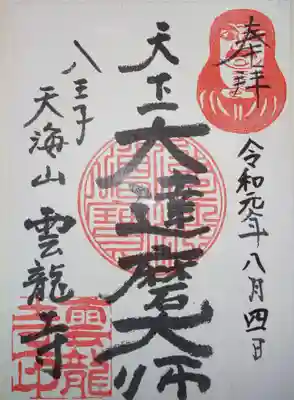 奉拝
令和元年八月四日
天下一大達磨大師
八王子
天海山 雲龍寺
雲龍